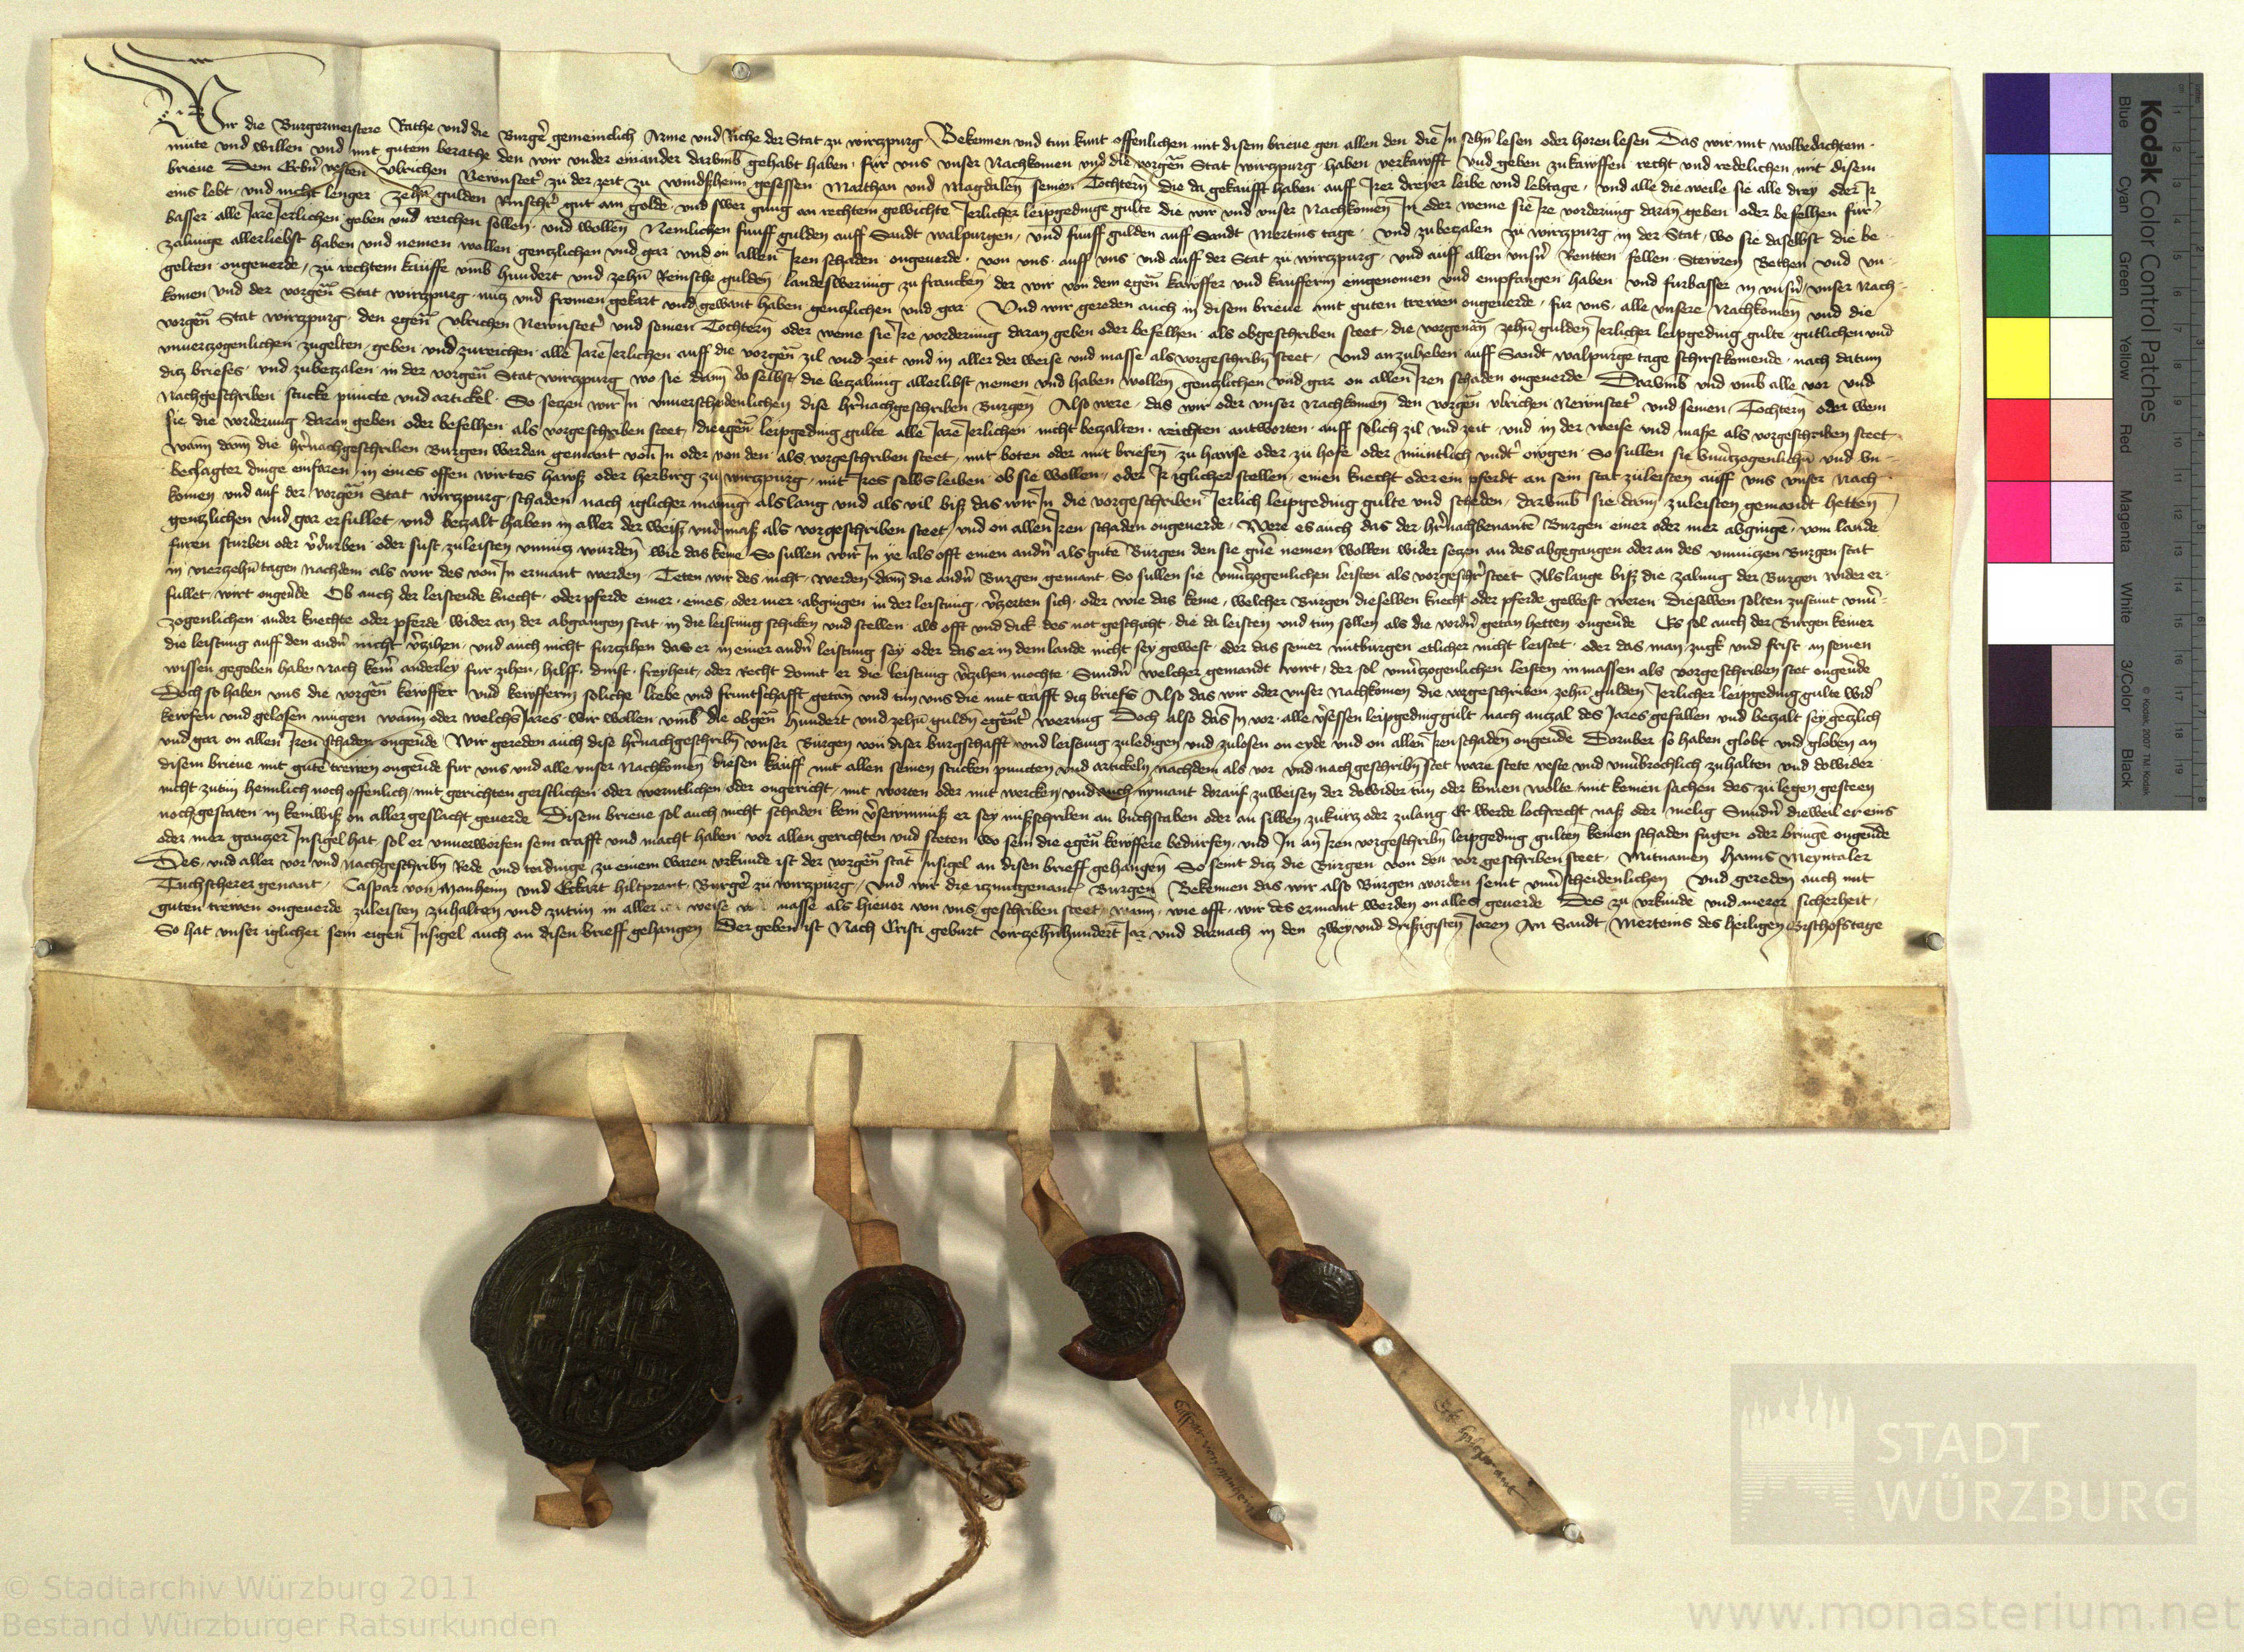 Wir die Burgermeistere Rathe und die Burgere gemeinclich Arme und Riche der Stat zu wirczpurg Bekennen und tun kunt offenlichen mit disem brieue gen allen den die In sehn lesen oder horen lesen Das wir mit wolbedachtem
mute und willen und mit gutem berathe den wir under einander darumb gehabt haben fur uns unser Nachkomen und die vorgen Stat wirczpurg haben verkawfft und geben zukawffen recht und redelichen mit disem
brieue Dem Erbern vesten Ulrichen Newnsteter zu der zeit zu windßheim gesessen Marthan und Magdalen seinen Tochtern die da gekaufft haben auff Irer dreyer leibe und lebtage und alle die weile sie alle drey oder Ir
eins lebt und nicht lenger zehn gulden Rinscher gut am golde und swer gnug an rechtem gewichte Jerlicher leipgedinge gulte die wir und unser Nachkomen In oder weme sie Ire vorderung daran geben oder befelhen fur
basser alle Jare Jerlichen geben und reichen sollen und wollen Nemlichen funff gulden auff Sandt walpurgen und funff gulden auff Sandt Mertins tage und zubeczalen zu wirczpurg in der Stat wo sie daselbst die be
zalunge allerliebst haben und nemen wollen genczlichen und gar und on allen Iren schaden ongeuerde von uns auff uns und auff der Stat zu wirczpurg und auff allen unsern Rentten fellen Stewren Bethen und un
gelten ongeuerde zu rechtem kauffe umb hundert und zehn Reinsche gulden landeswerung zu francken der wir von dem egen kawffer und kaufferin eingenomen und empfangen haben und furbasser in unsern unser Nach
komen und der vorgen Stat wirczpurg nucz und fromen gekart und gewant haben genczlichen und gar Und wir gereden auch in disem brieue mit guten trewen ongeuerde fur uns alle unsere Nachkomen und die
vorgen Stat wirczpurg den egen Ulrichen Newnsteter und seinen Tochtern oder weme sie Ire vorderung daran geben oder befelhen als obgeschriben steet die vorgenan zehn gulden Jerlicher leipgeding gulte gutlichen und
unuerczogenlichen zugelten geben und zureichen alle Jare Jerlichen auff die vorgen zil und zeit und in aller der weise und masse als vorgeschribn steet und anzuheben auff Sandt walpurge tage schirstkomende nach datum
dicz briefes und zubeczalen in der vorgen Stat wirczpurg wo sie dann do selbst die beczalung allerlibst nemen und haben wollen genczlichen und gar on allen Iren schaden ongeuerde Darumb und umb alle vor und
Nachgeschriben stucke puncte und artickel So seczen wir In unuerscheidenlichen dise hernachgeschriben Burgen Also were das wir oder unser Nachkomen den vorgen Ulrichen Newnsteter und seinen Tochtern oder wem
sie die vorderung daran geben oder befelhen als vorgeschriben steet die egen leipgeding gulte alle Jare Jerlichen nicht beczalten reichten antworten auff solich zil und zeit und in der weise und maße als vorgeschriben steet
wann dann die hernachgeschriben Burgen werden gemant von In oder von den als vorgeschriben steet mit boten oder mit briefen zu hawse oder zu hofe oder muntlich under owgen So sullen sie unuerczogenlichn und un
beclagter dinge einfaren in eines offen wirtes hawß oder herbirg zu wirczpurg mit Ires selbs leiben ob sie wollen oder Ir iglicher stellen einen knecht oder ein pferdt an sein stat zuleisten auff uns unser Nach
komen und auf der vorgen Stat wirczpurg schaden nach iglicher manung als lang und als vil biß das wir In die vorgeschriben Jerlich leipgeding gulte und scheden darumb sie dann zuleisten gemandt hetten
genczlichen und gar erfullet und beczalt haben in aller der weiß und maß als vorgeschriben steet und on allen Iren schaden ongeuerde Were es auch das der hernachbenante Burgen einer oder mer abginge vom lande
furen sturben oder verdurben oder sust zuleisten unnucz wurden wie das keme So sullen wir In ye als offt einen andern als gute Burgen den sie gerne nemen wollen wider seczen an des abgegangen oder an des unnuczen Burgen stat
in vierzehn tagen nachdem als wir des von In ermant werden Teten wir des nicht werden dann die andern Burgen gemant So sullen sie unuerczogenlichen leisten als vorgeschr steet Als lange biß die zalung der Burgen wider er
fullet wirt ongeuerde Ob auch der leistende knecht oder pferde einer eines oder mer abgingen in der leistung verzerten sich oder wie das keme welcher Burgen dieselben knecht oder pferde gewest weren dieselben solten zustunt unuer
zogenlichen ander knechte oder pferde wider an der abgangen stat in die leistung schicken und stellen als offt und dick des not geschicht die da leisten und tun sollen als die vordern getan hetten ongeuerde Es sol auch der Burgen keiner
die leistung auff den andern nicht verzihen und auch nicht furzihen das er in einer andern leistung sey oder das er in dem lande nicht sey gewest oder das seiner mitburgen etlicher nicht leistet oder das man zugk und frist an seinen
wissen gegeben habe Nach keinerr anderley fur zihen hilff dinst freyheit oder Recht domit er die leistung verzihen mochte Sundern welcher gemandt wirt der sol unuerczogenlichen leisten in massen als vorgeschriben stet ongeuerde
Doch so haben uns die vorgen kewffer und kewfferin soliche liebe und fruntschafft getan und tun uns die mit crafft dicz briefs Also das wir oder unser Nachkomen die vorgeschriben zehn gulden Jerlicher leipgeding gulte wider
kewfen und gelosen mugen wann oder welchs Jares wir wollen umb die obgen hundert und zehn guldn egenter werung Doch also das In vor alle versessen leipgeding gult nach anczal des Jares gefallen und beczalt sey genczlich
und gar on allen Iren schaden ongeuerde Wir gereden auch dise hernachgeschribn unser Burgen von diser burgschafft und leistung zuledigen und zulosen on eyde und on allen Iren schaden ongeuerde Doruber so haben globt und globen an
disem brieue mit gute trewen ongeuerde fur uns und alle unser Nachkomen diesen kauff mit allen seinen stucken puncten und artickeln nachdem als vor und nachgeschribn stet ware stete veste und unuerbrochlich zuhalten und dowider
nicht zutun heimlich noch offenlich mit gerichten geistlichen oder werntlichen oder ongericht mit worten oder mit wercken und auch nymant dorauf zuweisen der dowider tun oder komen wolte mit keinen sachen des zu legen gesteen
noch gestaten in keinwiß on aller geslacht geuerde Disem brieue sol auch nicht schaden kein verserimniß er sey mißschriben an buchstaben oder an silben zukurcz oder zulang Er werde lochrecht naß oder melig Sundern dieweil er eins
oder mer ganczer Insigel hat sol er unuerworfen sein crafft und macht haben vor allen gerichten und steten wo sein die egen kewffere bedurfen und In an Iren vorgeschribn leipgeding gulten keinen schaden fugen oder bringe ongeuerde
Des und aller vor und Nachgeschribn Rede und teidinge zu einem waren urkunde ist der vorgen stat Insigel an disen brieff gehangen So seint dicz die Burgen von den vor geschriben steet Mitnamen Hanns Meyntaler
Tuchscherer genant Caspar von Manheim und Eckart hiltprant Burgere zu wirczpurg und wir die iczuntgenant Burgen Bekennen das wir also Burgen worden seint unuerscheidenlichen und gereden auch mit
guten trewen ongeuerde zuleisten zuhalten und zutun in aller weise masse als hieuor von uns geschriben steet wann wie offt wir des ermant werden on alles geuerde Des zu urkunde und merer sicherheit
So hat unser iglicher sein eigen Insigel auch an disen brieff gehangen Der geben ist Nach Cristi geburt vierzehnhundert Jar und darnach in den zwey und drißigisten Jaren An Sandt Merteins des heiligen Bischofs tage
Caspar von
Kodak Color Control Patches
Blue Cyan Green Yellow Red Magenta White 3/Color Black
© Kodak, 2007 TM: Kodak
STADT
WÜRZBURG
© Stadtarchiv Würzburg 2011
Bestand Würzburger Ratsurkunden
www.monasterium.net